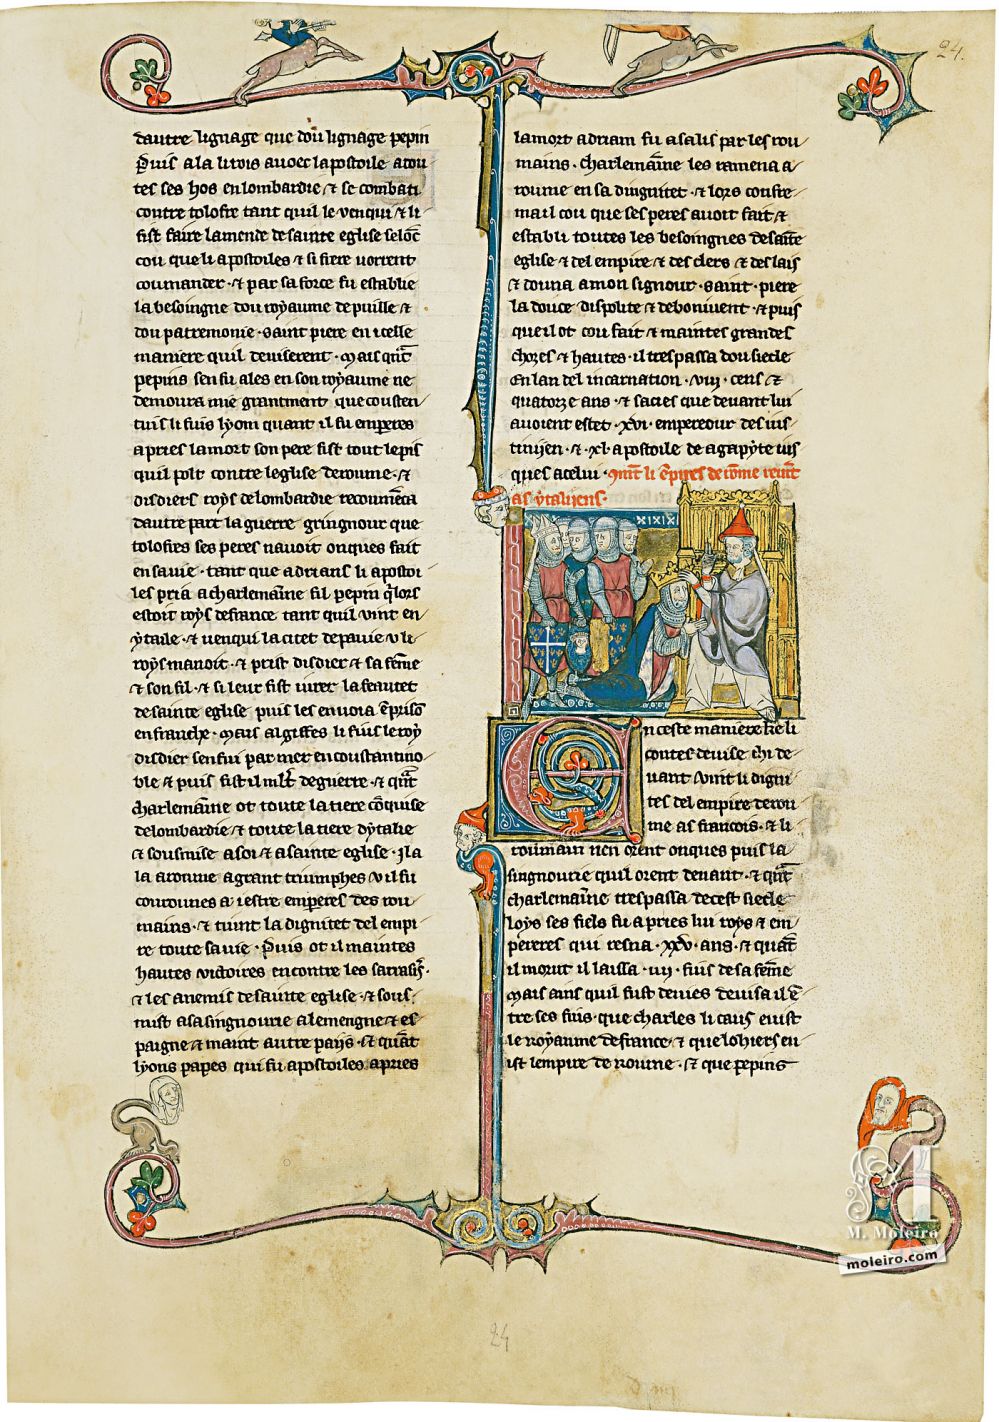 24.
dautre lignage que dou lignage pepin
Puis ala li rois avoec lapostoile a tou
tes ses hos en lombardie ⁊ se combati
contre tolofre tant quil le venqui ⁊ li
fist faire lamende de sainte eglise selōc
cou que li apostoiles ⁊ si frere vorrent
coumander · ⁊ par sa force fu establie
la besoingne dou royaume de puille ⁊
dou patremonie · saint piere en icelle
maniere quil deviserent · Mais qn̄t
pepins sen fu ales en son royaume ne
demoura mie grantment que cousten
tins li fiuls lyom quant il fu emperes
apries la mort son pere fist tout le pis
quil pot contre leglise de roume · ⁊
disdiers roys de lombardie recoumēca
dautre part la guerre gringnour que
tolofres ses peres navoit onques fait
en sa vie · tant que adrians li apostoi
les pria a charlemāine fil pepin q̄ lors
estoit roys de france tant quil vint en
ytaile · ⁊ venqui la citet de pavie u li
roys manoit · ⁊ prist disdier ⁊ sa feme
⁊ son fil · ⁊ si leur fist iurer la feautet
de sainte eglise puis les envoia ē prisō
en franche · Mais algisses li fiuls le roy
disdier sen fui par mer en coustantino
ble ⁊ puis fist il mlt̄ de guerre · ⁊ qn̄t
charlemāine ot toute la tiere cōquise
de lombardie ⁊ toute la tiere dytalie
⁊ sousmise a soi ⁊ a sainte eglise · Il a
la a roume a grant triumphes v il fu
courounes a iestre emperes des rou
mains · ⁊ tint la dignitet del empi
re toute sa vie · Puis ot il maintes
hautes victoires encontre les sarrasis̄ ·
⁊ les anemis de sainte eglise · ⁊ sous
mist a sa singnourie alemengne ⁊ es
paigne ⁊ maint autre pays · ⁊ quāt
lyons papes qui fu apostoiles apries
la mort adriam fu asalis par les rou
mains · charlemāine les ramena a
roume en sa dingnitet · ⁊ lors confre
ma il cou que ses peres avoit fait ⁊
establi toutes les besoingnes de saīte
eglise ⁊ del empire ⁊ des clers ⁊ des lais
⁊ douna a mon signour · saint · piere
la douce dispolite ⁊ de bonivent · ⁊ puis
que il ot cou fait ⁊ maintes grandes
choses ⁊ hautes · il trespassa dou siecle
En lan del incarnation · viii · cens ⁊
quatorze ans · ⁊ sacies que devant lui
avoient estet · xvi · empereour des ius
tinijen · ⁊ · xl · apostoile de agapyte ius
ques a celui · Qn̄t li ēpires de rōme revīt
as ytaliiens ·
XIXIX
En ceste maniere k̄e li
contes devise chi de
vant vint li digni
tes del empire de rou
me as francois · ⁊ li
roumain nen orent onques puis la
singnourie quil orent devant · ⁊ qn̄t
charlemāine trespassa de cest siecle
loys ses fiels fu apries lui roys ⁊ em
pereres qui regna · xxv · ans · ⁊ quāt
il morut il laissa · iii · fiuls de sa feme
Mais ains quil fust devies devisa il ē
tre ses fiuls · que charles li caus euist
le royaume de france · ⁊ que lohiers eu
ist lempire de roume · ⁊ que pepins
M. Moleiro
moleiro.com
24